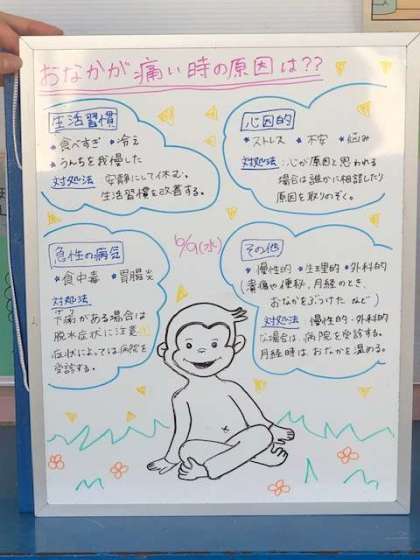 おなかが痛い時の原因は??
生活習慣
★食べすぎ ★冷え
★うんちを我慢した
対処法 安静にして休む。
生活習慣を改善する。
心因的
★ストレス ★不安 ★悩み
対処法:心が原因と思われる
場合は誰かに相談したり
原因を取りのぞく。
急性の病気
★食中毒 ★胃腸炎
対処法
下痢がある場合は
脱水症状に注意
症状によっては病院を
受診する。
(水)
その他
★慢性的 ★生理的 ★外科的
(胃痛や便秘、月経のとき、
おなかをぶつけた など)
対処法 慢性的・外科的
な場合は、病院を受診する。
月経時は、おなかを温める。